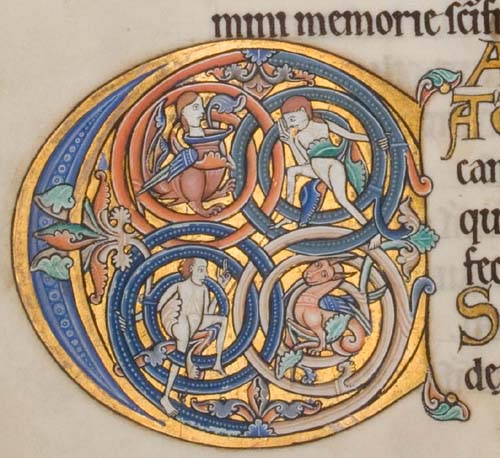 mini memorie scīf
A
AT
car
qu
fec
S
de